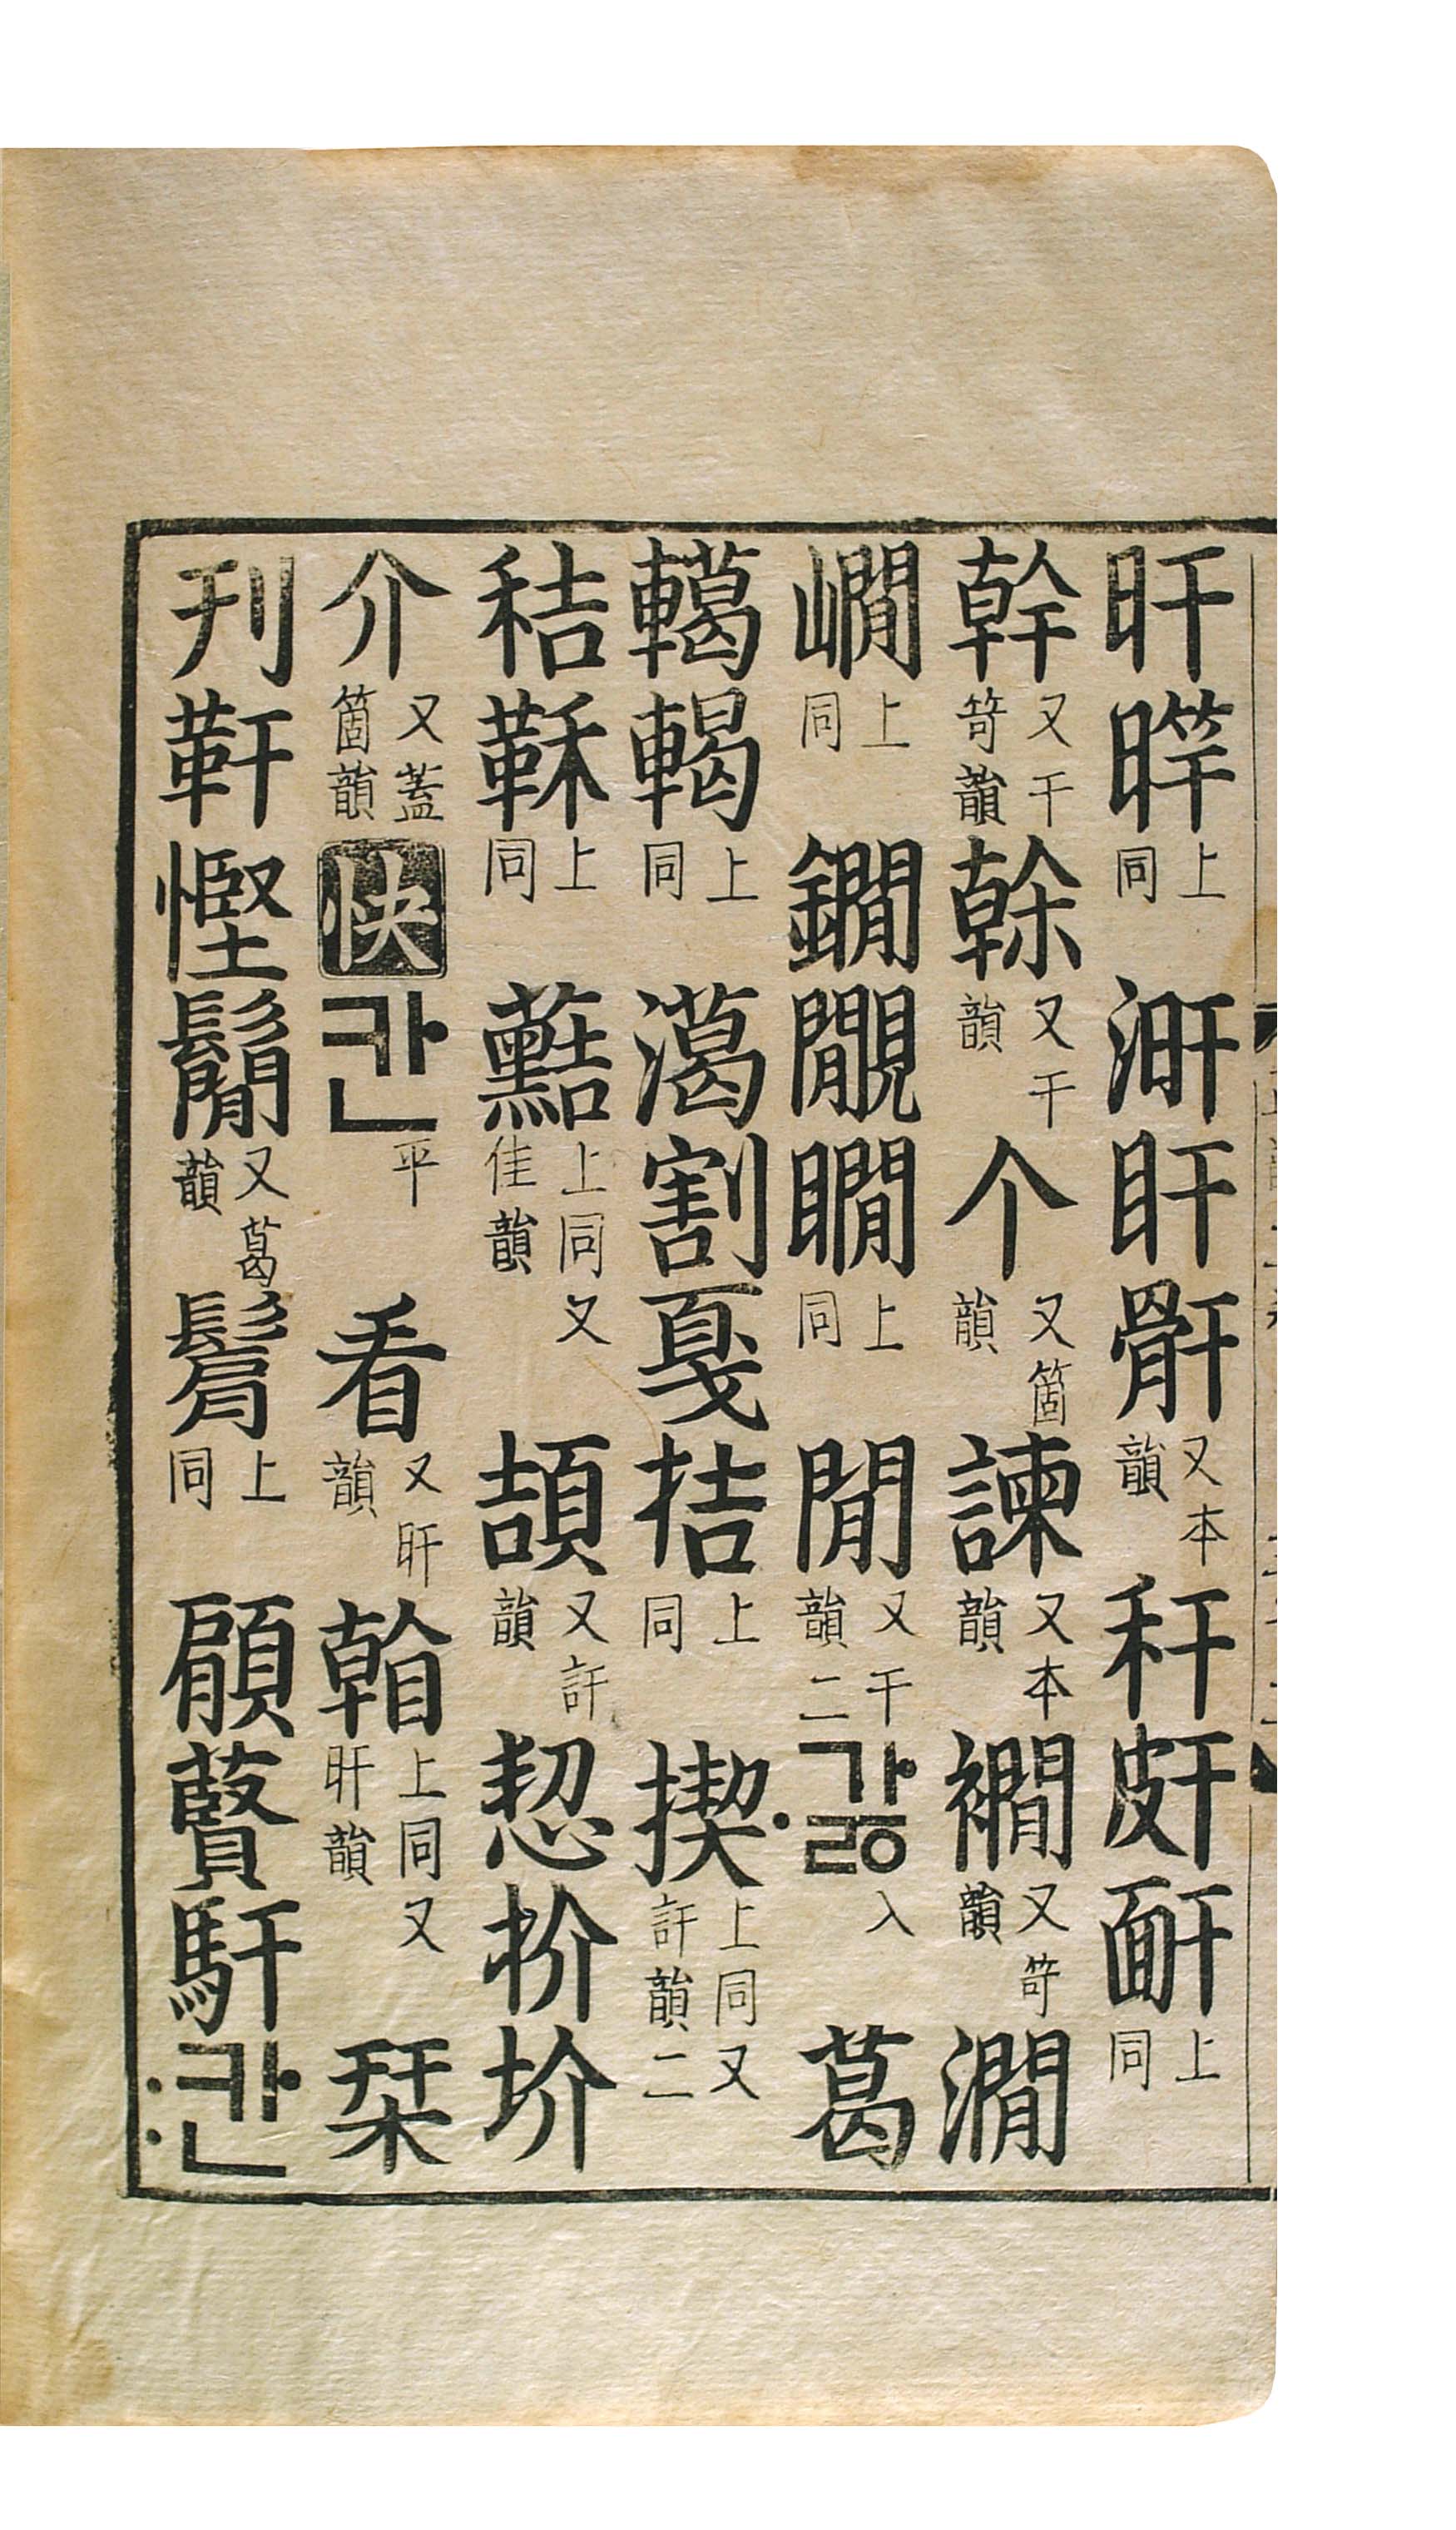 旰㫨上同㵎盰骭又本韻秆皯靬上同
幹又干笴韻榦又干韻个又箇韻諫又本韻襉又笴韻澗
嶹上同鐗覸瞯上同閒又干韻二·갏入葛
轕輵上同濭割戛拮上同揳上同又訐韻二
秸鞂上同䕸上同又佳韻頡又訐韻恝扴圿
介又蓋箇韻快칸平看又旰韻翰上同又旰韻栞
刊靬慳鬜又葛韻鬝上同顅藖馯:칸